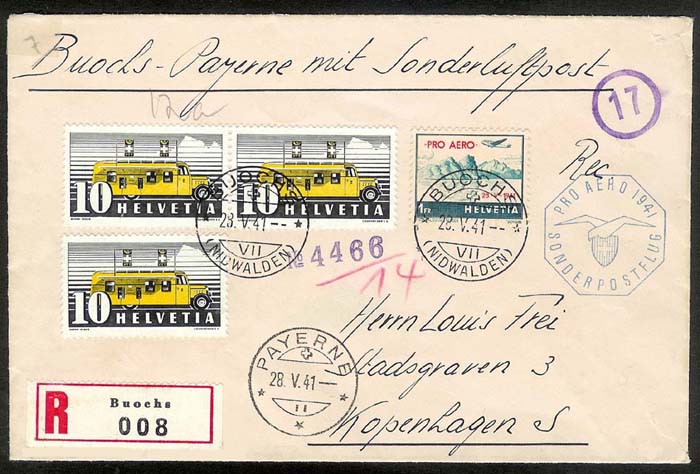 7
Buochs-Payerne mit Sonderluftpost
17
10
HELVETIA
10
HELVETIA
10
HELVETIA
PRO AERO
1 FR
HELVETIA
BUOCHS
28.V.41--
VII
(NIDWALDEN)
BUOCHS
28.V.41--
VII
(NIDWALDEN)
Rec
PRO AERO 1941
SONDERPOSTFLUG
№ 4466
14
PAYERNE
28.V.41—
II
Herrn Louis Frei
Stadsgraven 3
Kopenhagen S
R
Buochs
008